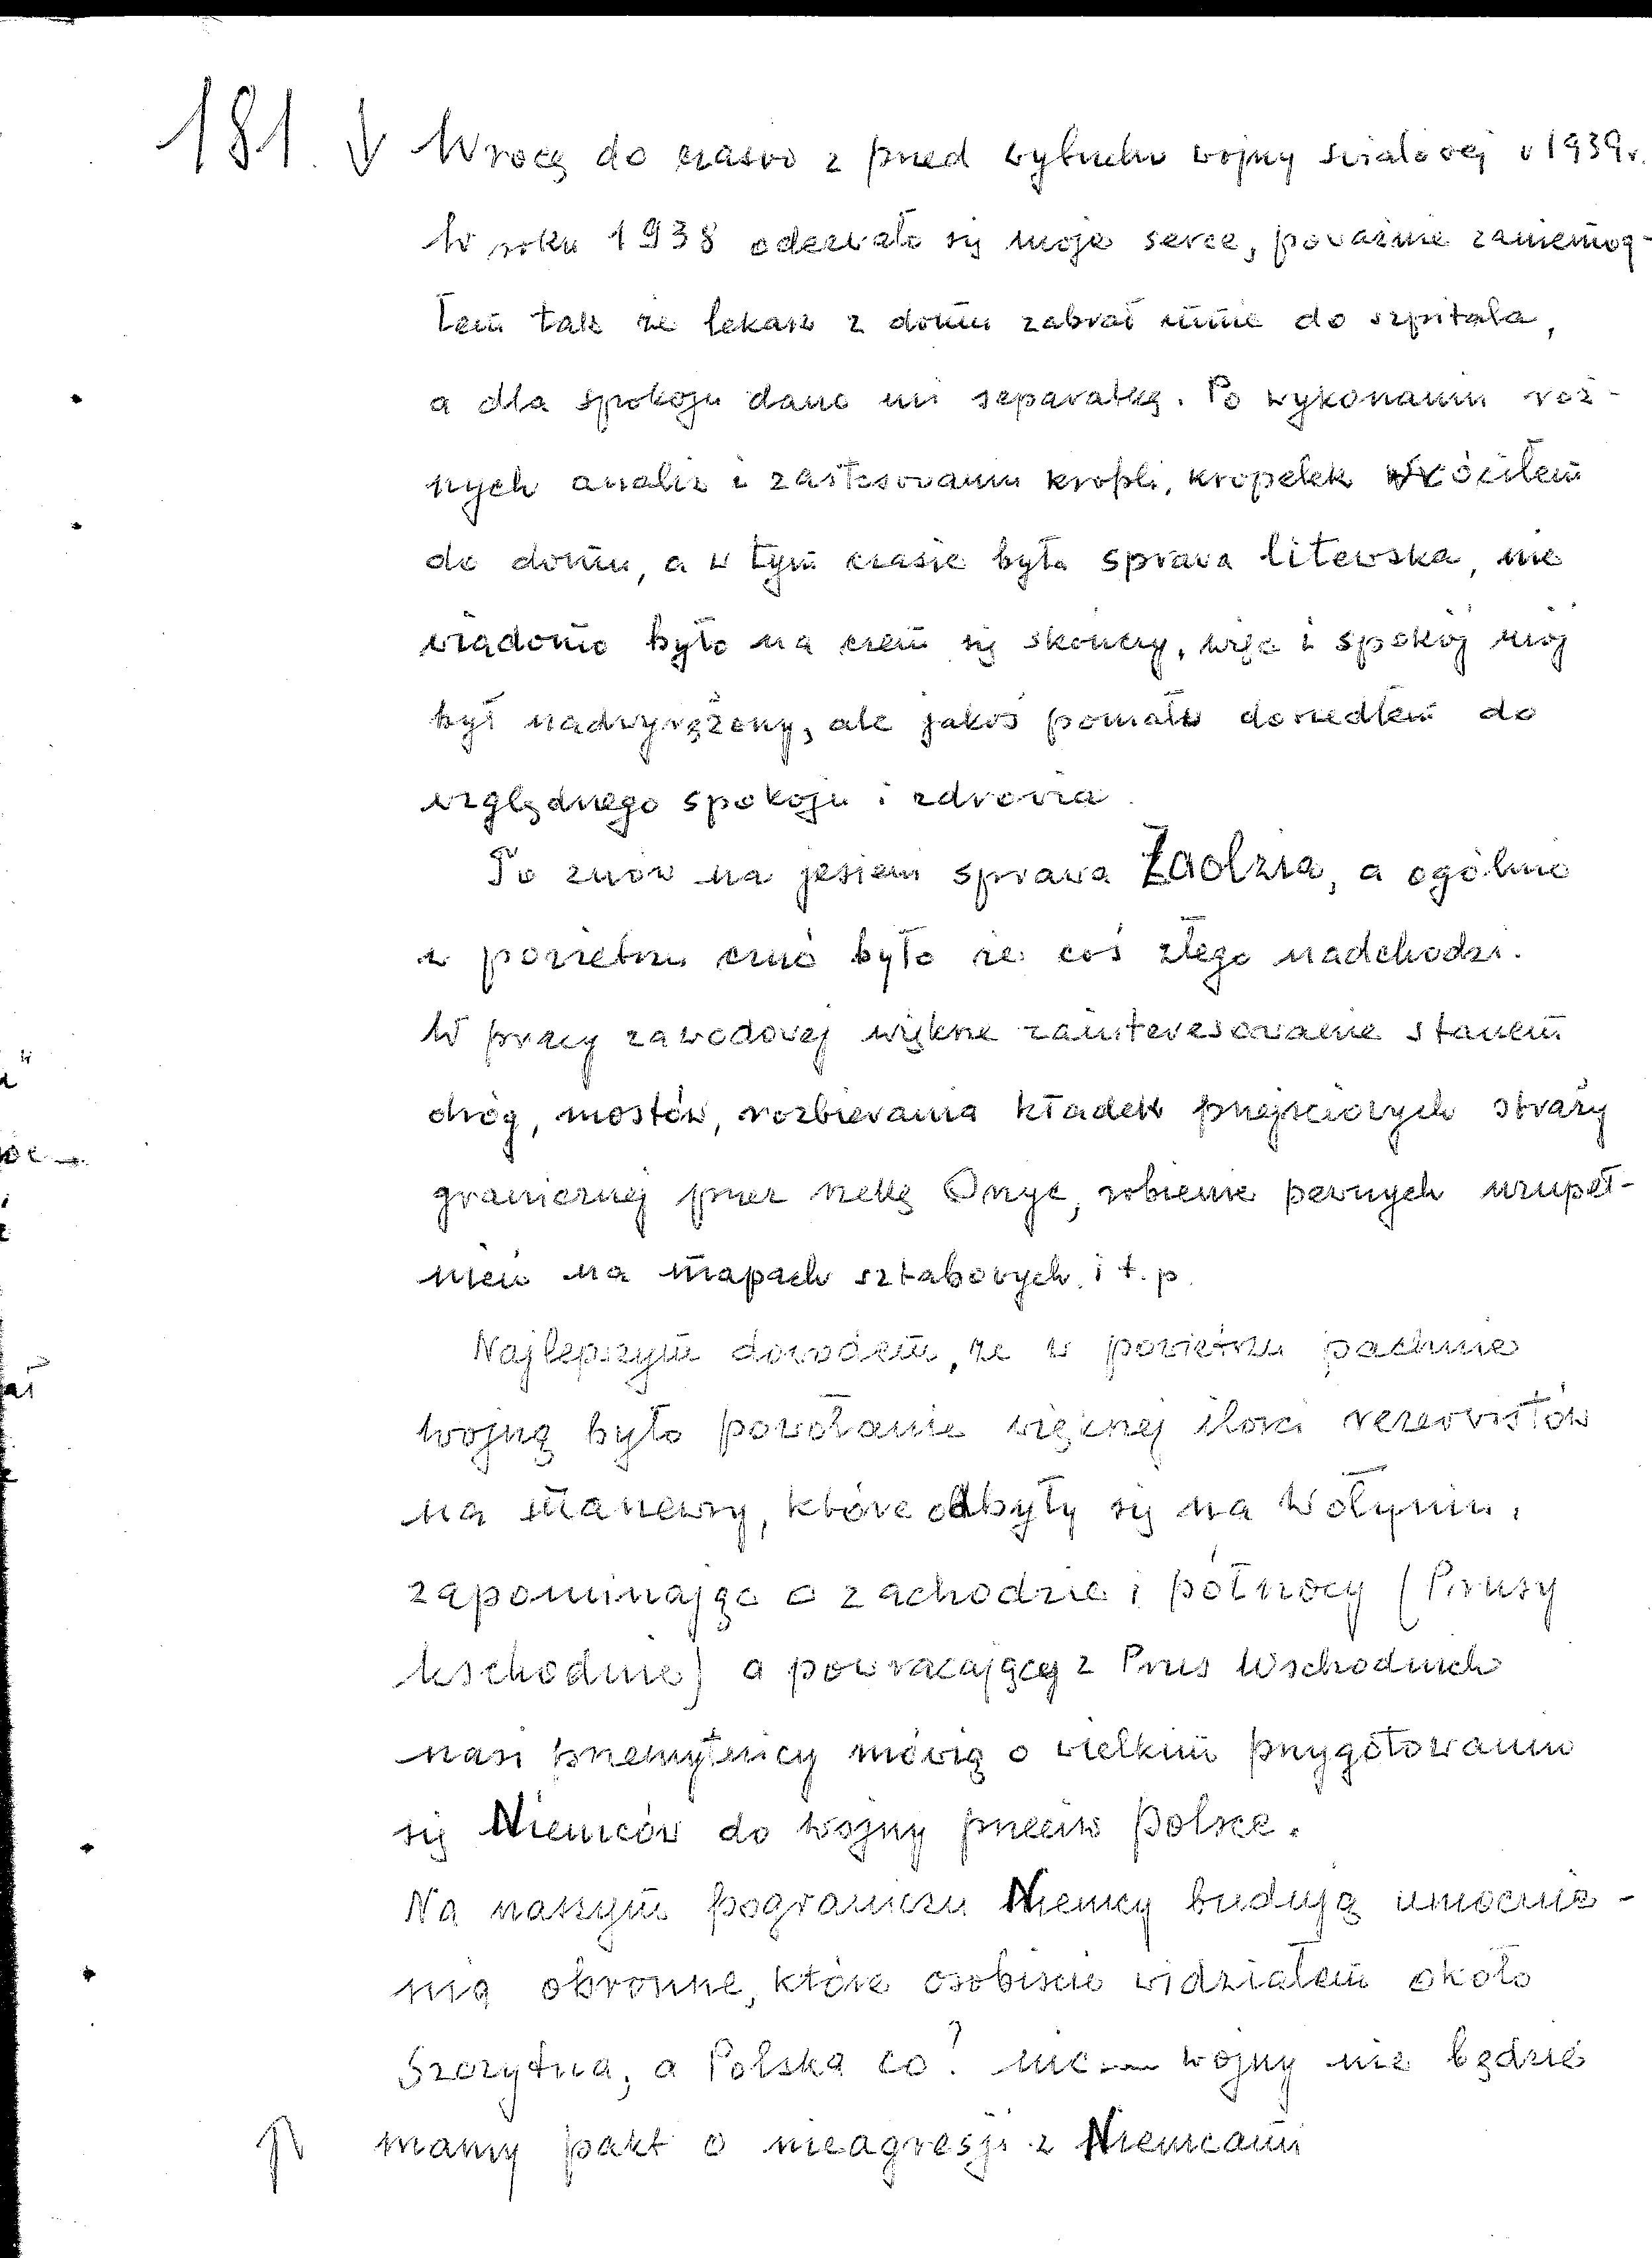 181. ↓ Wrocę do czasów z przed wybuchu wojny swiatowej w 1939r.
W roku 1938 odezwało się moje serce, poważnie zaniemog-
łem tak że lekarz z domu zabrał mnie do szpitala,
a dla spokoju dano mi separatkę. Po wykonaniu roż-
nych analiz i zastosowaniu kropli, kropelek wróciłem
do domu, a w tym czasie była sprawa litewska, nie
wiadomo było na czem się skończy, więc i spokój mój
był nadwyrężony, ale jakoś pomału doszedłem do
względnego spokoju i zdrowia.
To znów na jesieni sprawa Zaolzia, a ogólnie
w powietrzu czuć było że coś złego nadchodzi.
W pracy zawodowej większe zainteresowanie stanem
dróg, mostów, rozbierania kładek przejściowych straży
granicznej przez rzekę Orzyc, robienie pewnych uzupeł-
nień na mapach sztabowych i t. p.
Najlepszym dowodem, że w powietrzu pachnie
wojną było powołanie większej ilości rezerwistów
na manewry, które odbyły się na Wołyniu,
zapominając o zachodzie i północy (Prusy
Wschodnie) a powracający z Prus Wschodnich
nasi przemytnicy mówią o wielkim przygotowaniu
się Niemców do wojny przeciw Polsce.
Na naszym pograniczu Niemcy budują umocnie-
nia obronne, które osobiście widziałem około
Szczytna, a Polska co? nic — wojny nie będzie
↑ mamy pakt o nieagresji z Niemcami